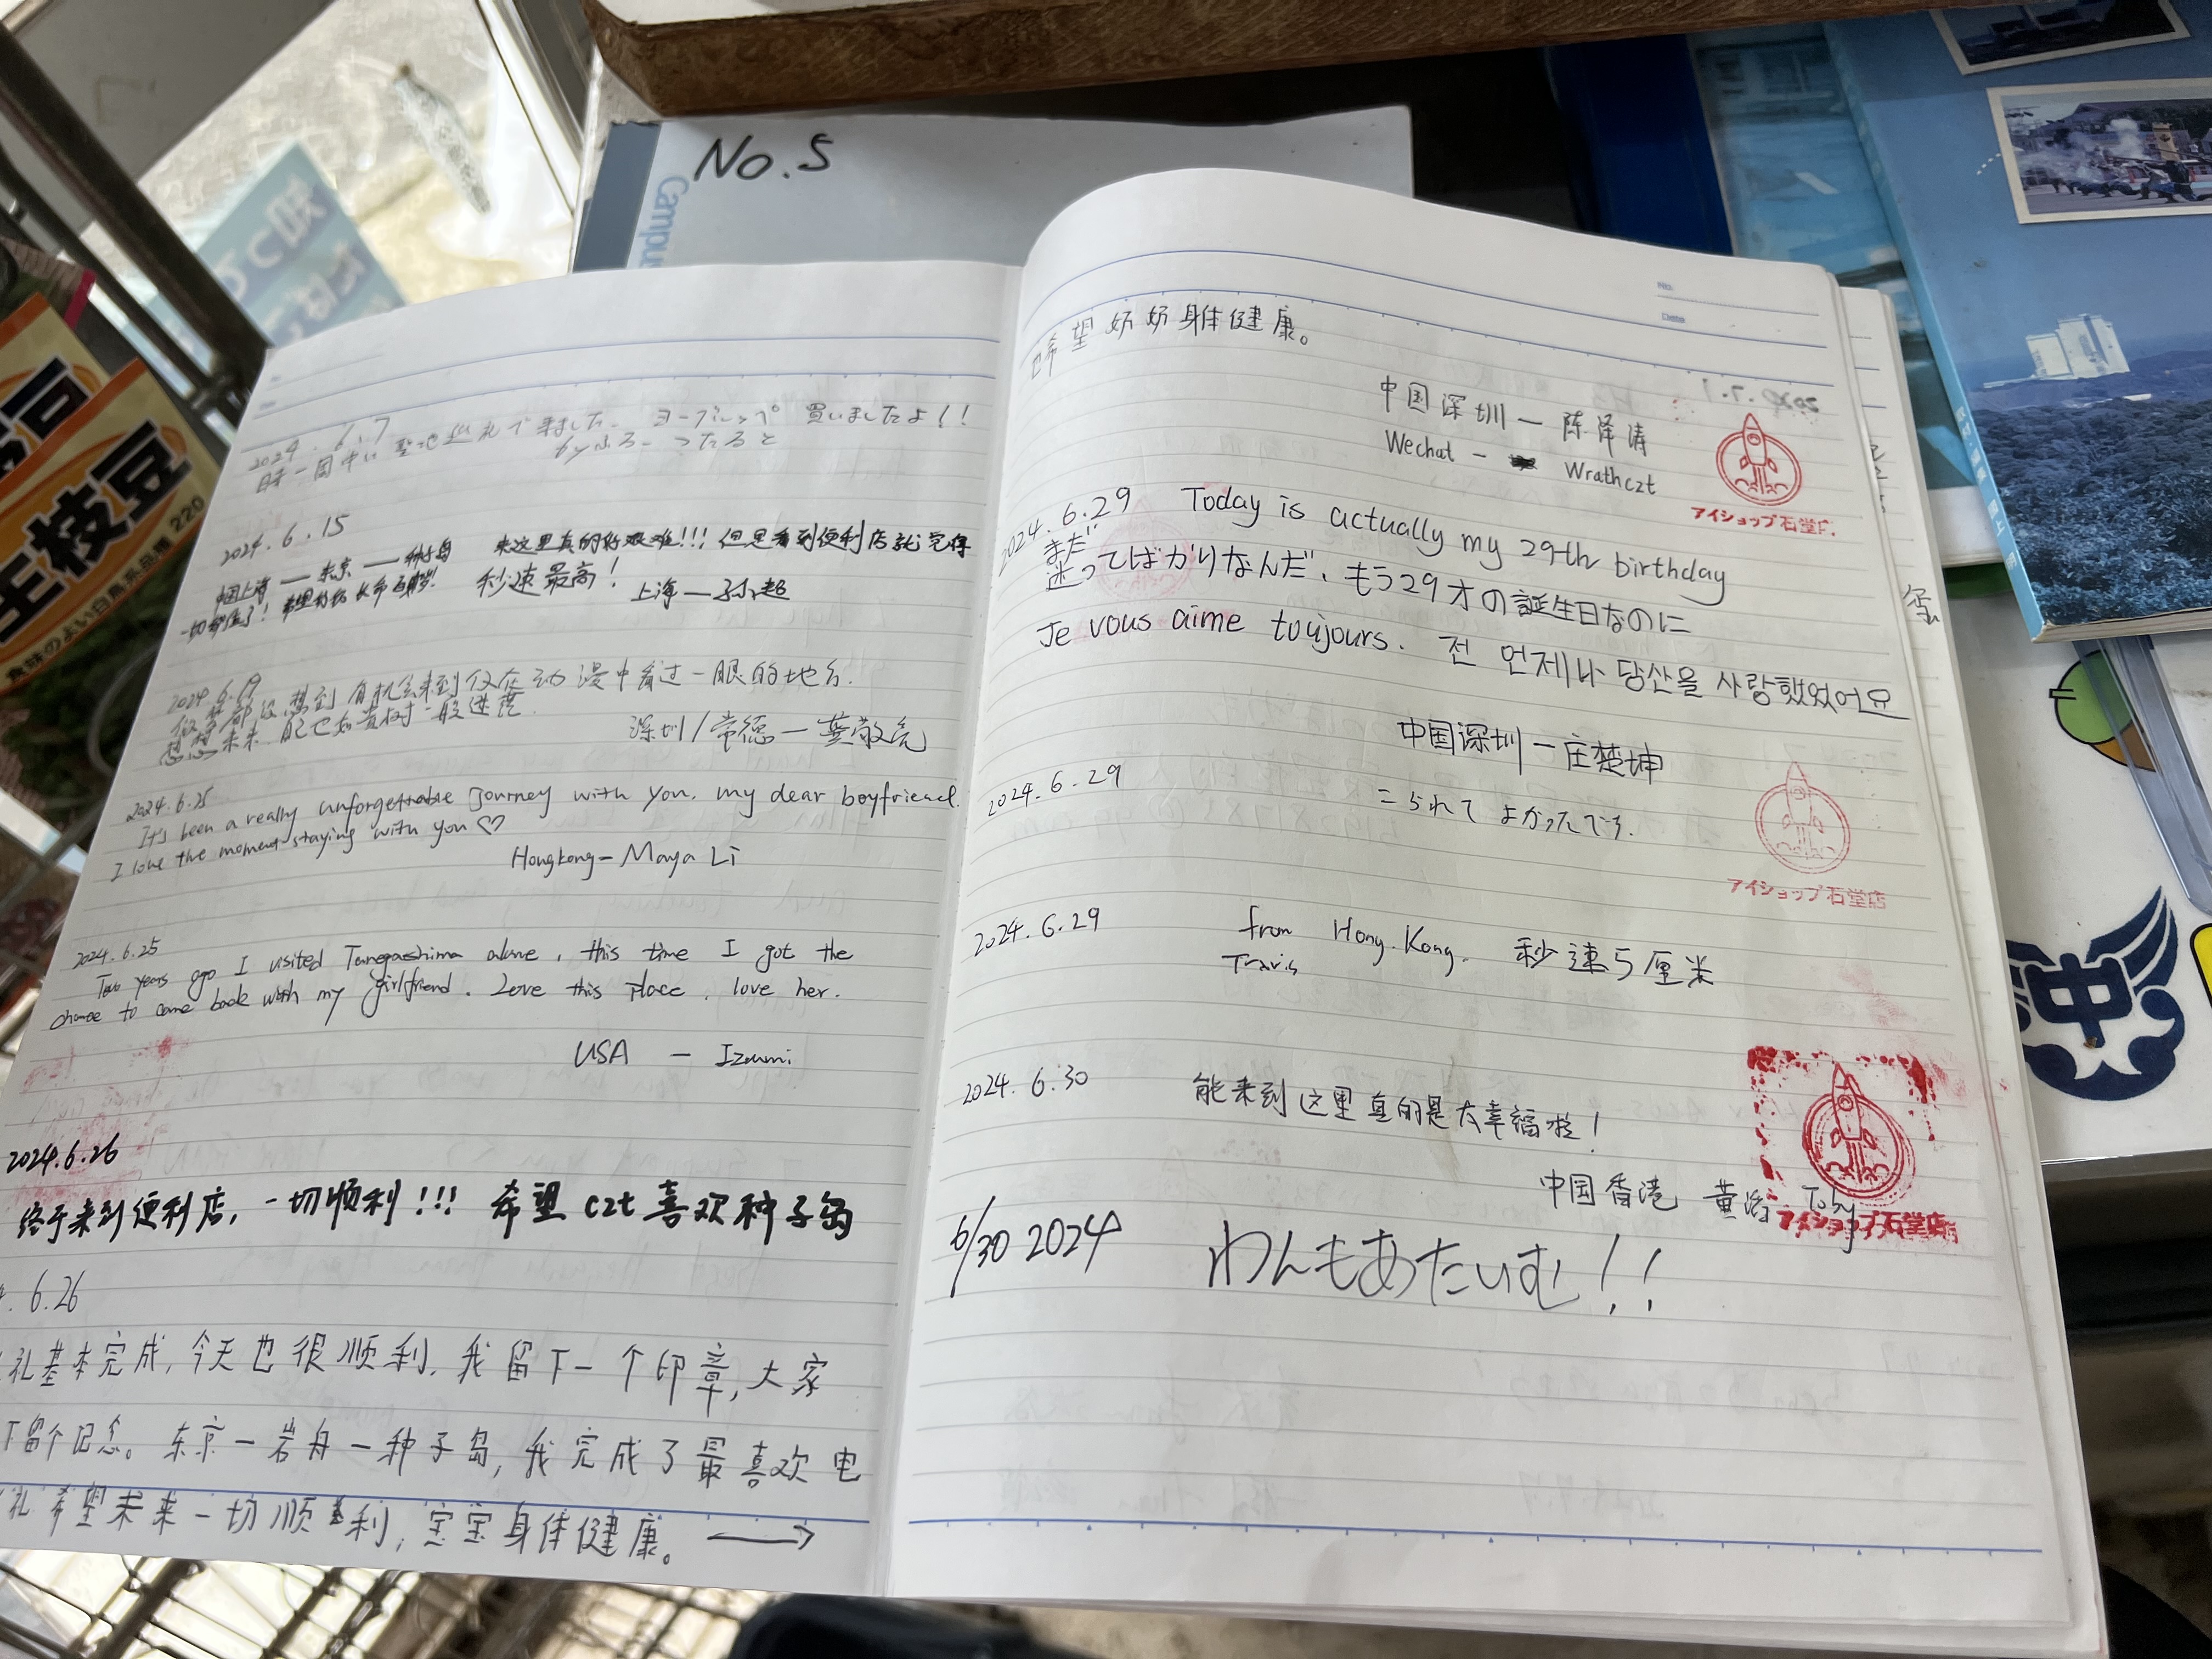 No.5
Campus
2024.6.7
聖地巡礼で来ました、ヨーグルッペ 買いましたよ!!
2024.6.15
中国上海 — 东京 — 种子岛
来这里真的好艰难!!! 但是看到便利店就觉得
秒速最高!
上海—孙超
2024.6.19
做梦都没想到有机会来到仅在动漫中看过一眼的地方.
深圳/常德—龚敬尧
2024.6.25
It's been a really unforgettable journey with you, my dear boyfriend.
I love the moment staying with you ♡
Hongkong – Maya Li
2024.6.25
Two years ago I visited Tanegashima alone, this time I got the
chance to come back with my girlfriend. Love this place, love her.
USA — Izumi
2024.6.26
终于来到便利店, 一切顺利!!! 希望 czt 喜欢种子岛
. 6.26
礼基本完成, 今天也很顺利, 我留下一个印章, 大家
下留个记念。东京—岩舟—种子岛, 我完成了最喜欢电
礼 希望未来一切顺利, 宝宝身体健康。→
No.
Date
也希望奶奶身体健康。
中国深圳—陈泽涛
Wechat – Wrathczt
アイショップ石堂店
2024.6.29 Today is actually my 29th birthday
まだ
迷ってばかりなんだ、もう29才の誕生日なのに
Je vous aime toujours. 전 언제나 당산을 사랑했었어요
中国深圳—庄楚坤
2024.6.29
こられて よかったです.
アイショップ石堂店
2024.6.29 from Hong Kong. 秒速5厘米
Travis
2024.6.30 能来到这里真的是太幸福啦!
中国香港 黄 Toby
アイショップ石堂店
6/30 2024 わんもあたいむ!!
王枝豆
220
中